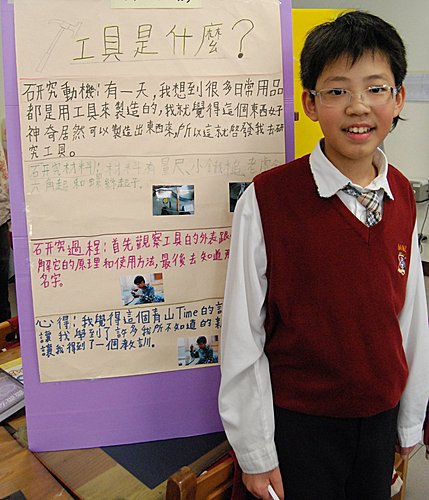 工具是什麼?
研究動機:有一天,我想到很多日常用品
都是用工具來製造的,我就覺得這個東西好
神奇居然可以製造出東西來,所以這就啟發我去研
究工具。
研究材料:材料有量尺、小鐵槌、老虎
六角起和螺絲起子。
研究過程:首先觀察工具的外表跟
解它的原理和使用方法,最後去知道
名字。
心得:我覺得這個青山Time的
讓我學到了許多我所不知道的
讓我得到了一個教訓。